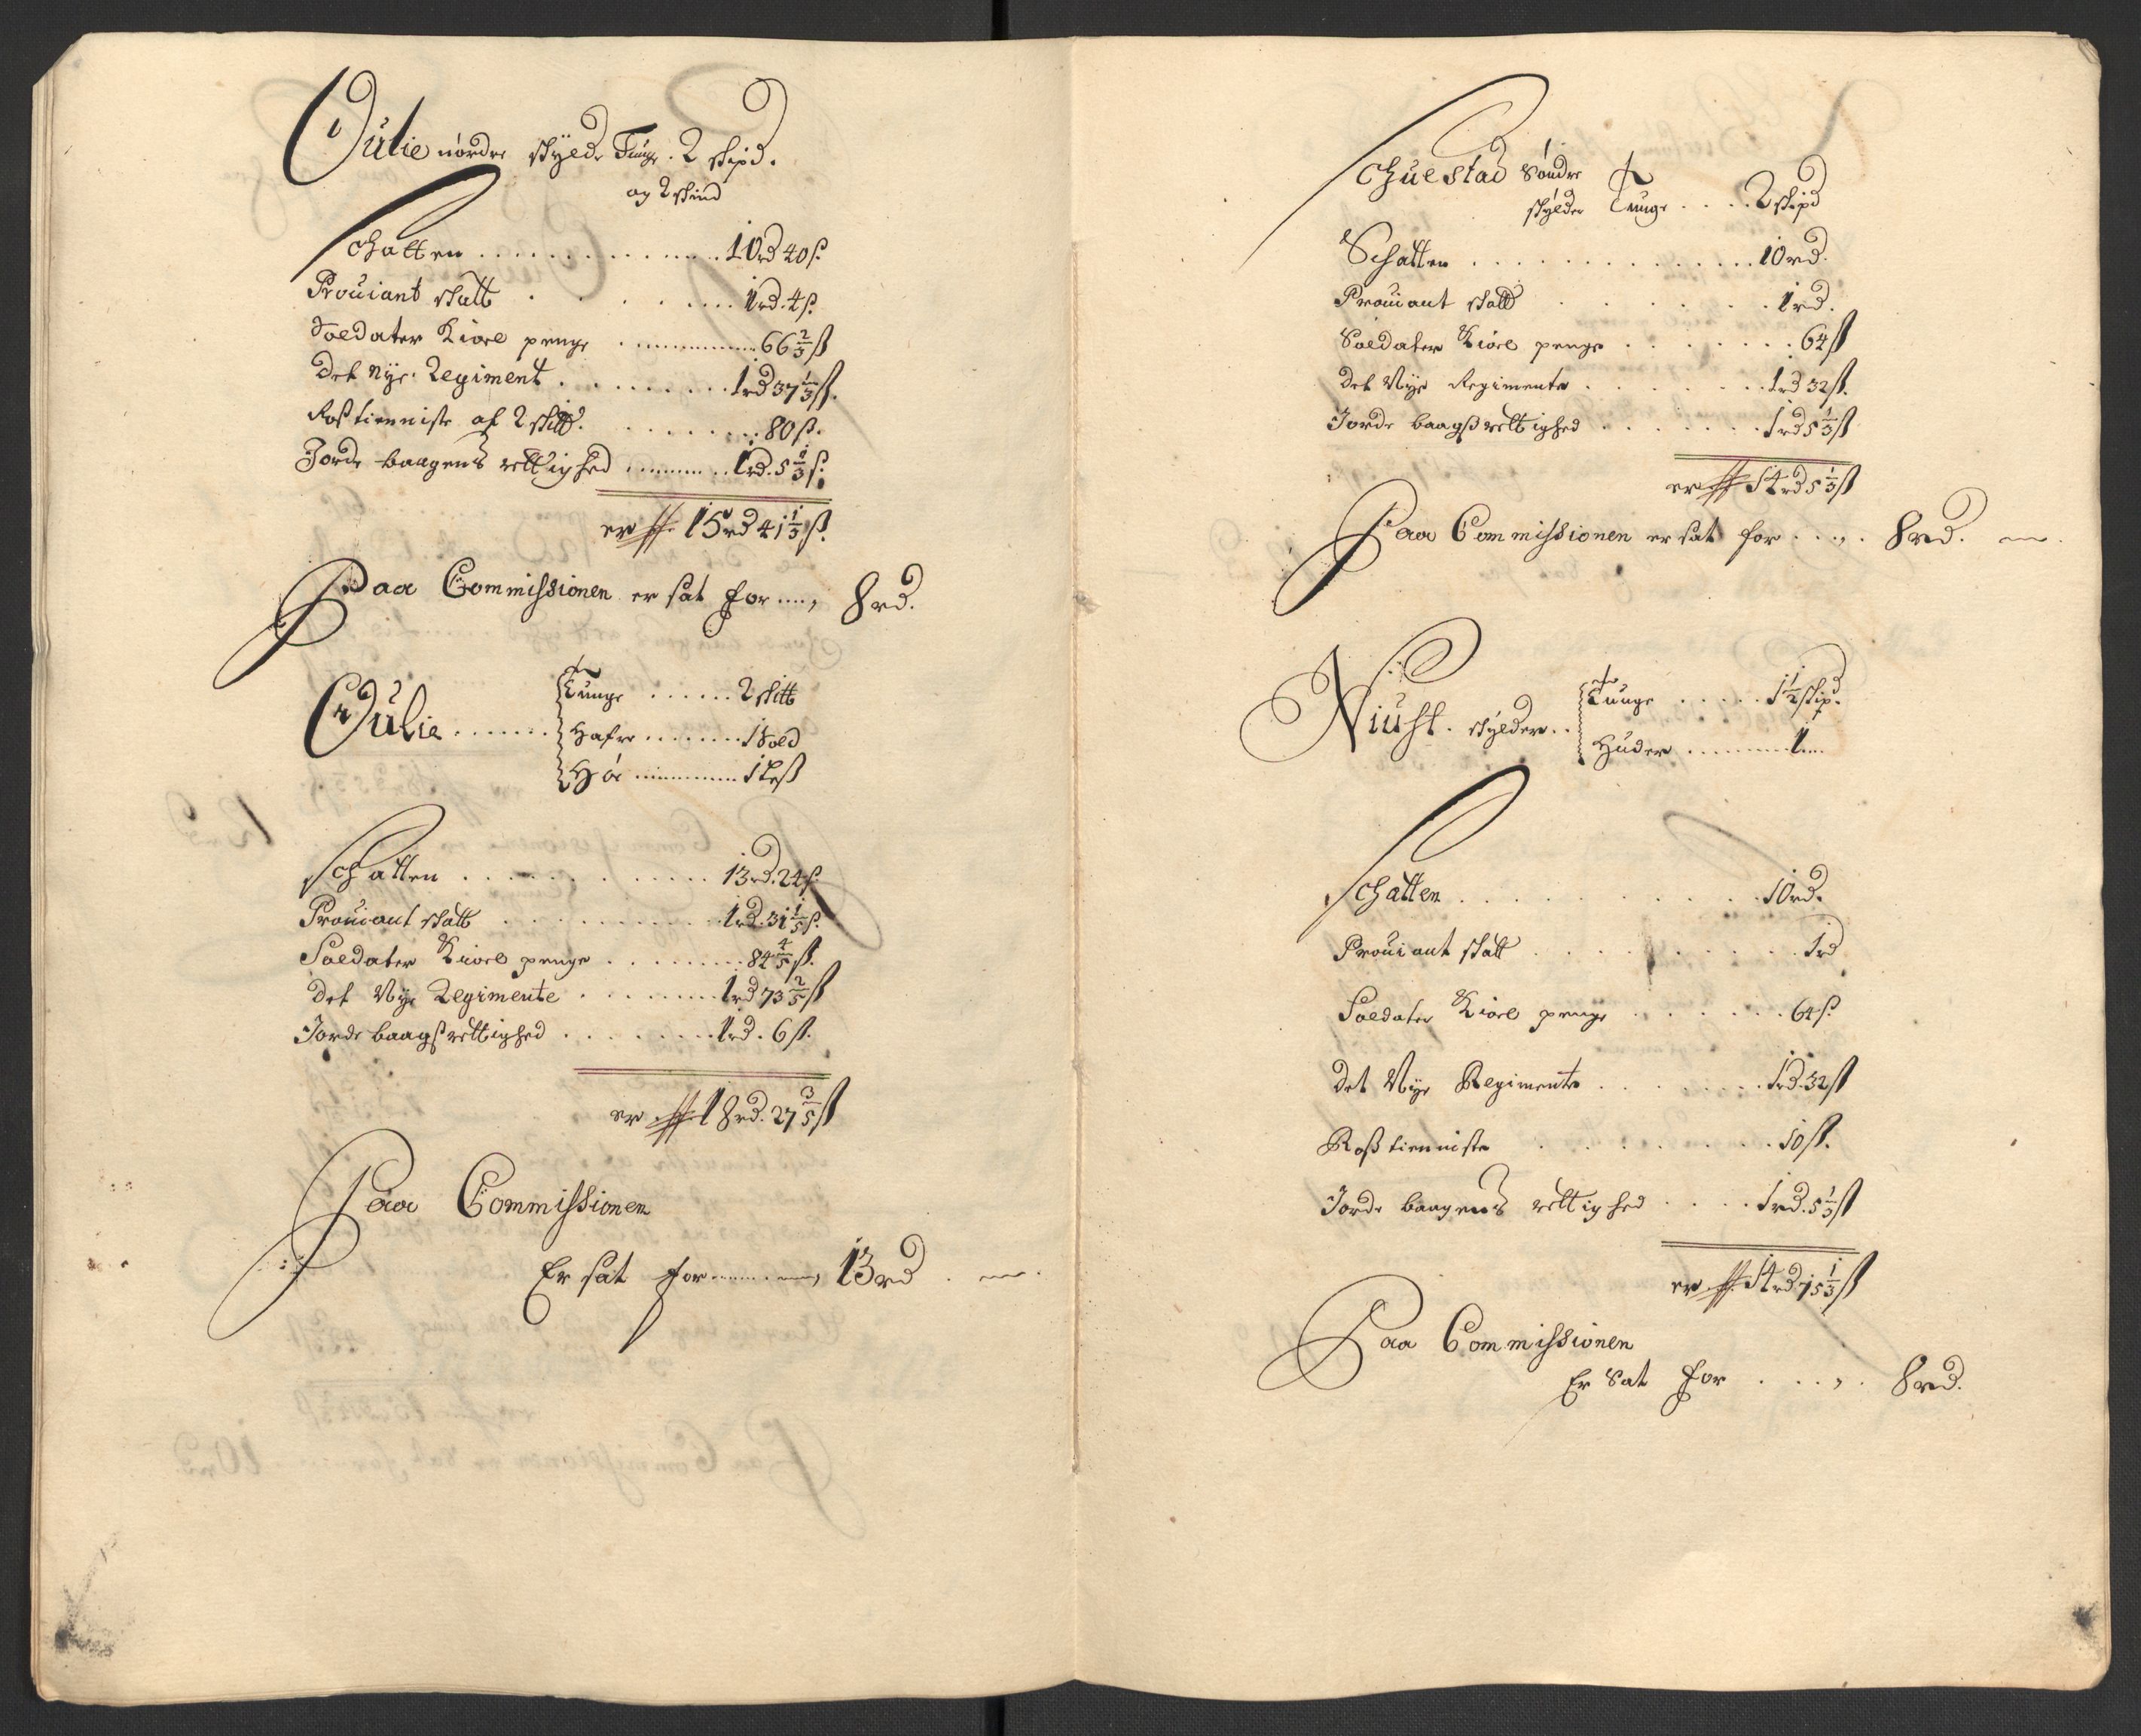 Gulie nordre skylde Tunge . 2 skipd.
og 2 skind
Schatten . . . . . . . . . . . . . . 10rd 40ß
Prouiant skatt . . . . . . . . 1rd. 4ß.
Soldater Kioel penge . . . . . . . . 66 2/3 ß
Det Nye Regiment . . . . . . . . . 1rd 37 1/3 ß.
Rostienniste af 2 skill. . . . . . . . . 80ß.
Jorde baagens rettighed . . . . . . . . 1rd. 5 1/3 ß.
er 15rd 41 1/3 ß.
Paa Commissionen er sat for ...., 8rd.
Tunge . . . . . . 2 skttb
Gulie . . . . . . . Hafre . . . . . . . 1 Sold
Hö . . . . . . . . 1 Leß
Schatten . . . . . . . . . . . . 13rd. 24ß.
Prouiant skatt . . . . . . . . . . . 1rd. 31 1/5 ß.
Soldater Kioel penge . . . . . . . . 84 4/5 ß.
Det Nye Regimente . . . . . . . . 1rd 73 2/5 ß
Jorde baagß rettighed . . . . . . . . 1rd. 6ß.
er 18rd. 27 3/5 ß
Paa Commissionen
Er sat for . . . . . . . , 13rd .
Schuestad Söndre
skylder Tunge . . . . 2 skipd
Schatten . . . . . . . . . . . . . . 10rd.
Prouiant skatt . . . . . . . . 1rd.
Soldater Kioel penge . . . . . . . 64ß
Det Nye Regimente . . . . . . . . 1rd 32ß.
Jorde baagß rettighed . . . . . . . 1rd 5 1/3 ß
er 14rd 5 1/3 ß
Paa Commissionen er sat for . . . , . 8rd.
Tunge . . . . . 1 1/2 skipd.
Niust . skylder . .
Huder . . . . . . . . 1 . . .
Schatten . . . . . . . . . . . 10rd.
Prouiant skatt . . . . . . . . . . . 1rd
Soldater Kioel penge . . . . . . 64ß.
Det Nye Regimente . . . . . . . . 1rd. 32ß
Roßtienniste . . . . . . . . . 10ß.
Jorde baagens rettighed . . . . 1rd. 5 1/3 ß
er 14rd 15 1/3 ß
Paa Commissionen
Er Sat for . . . , . 8rd.